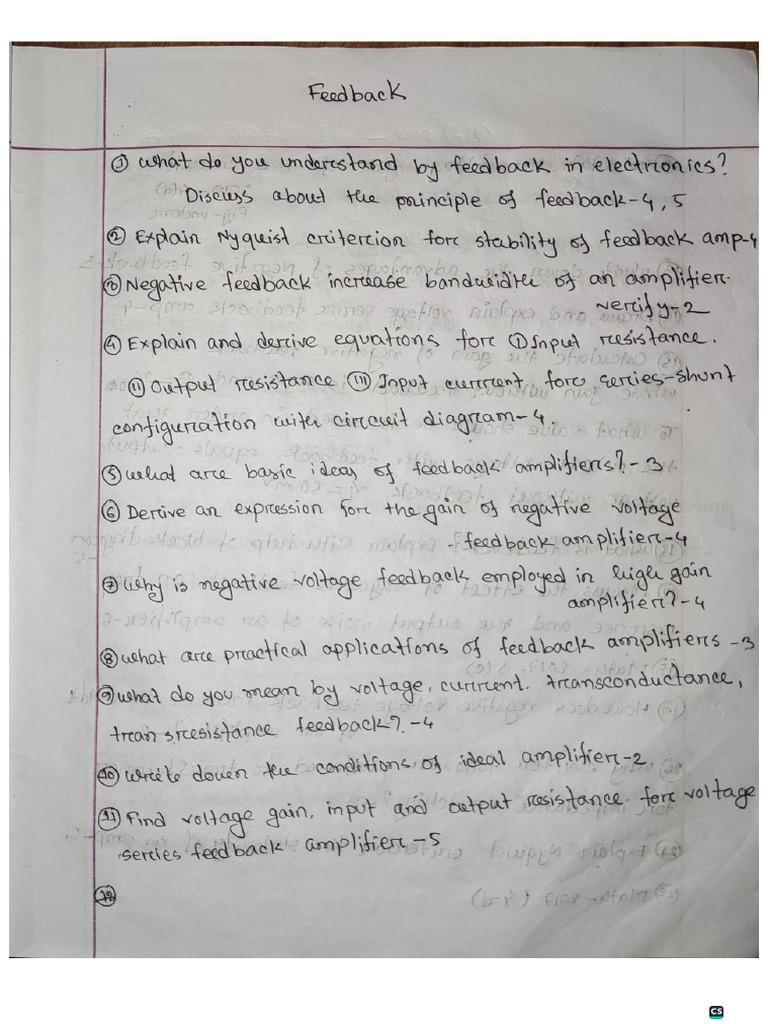 Feedback
① What do you understand by feedback in electronics?
Discuss about the principle of feedback-4,5
② Explain Nyquist criterion for stability of feedback amp-4
③ Negative feedback increase bandwidth of an amplifier.
verify-2
④ Explain and derive equations for ① Input resistance.
⑪ Output resistance ⑪① Input current for series-shunt
configuration with circuit diagram-4.
⑤ What are basic ideas of feedback amplifiers?-3
⑥ Derive an expression for the gain of negative voltage
feedback amplifier-4
⑦ Why is negative voltage feedback employed in high gain
amplifier?-4
⑧ What are practical applications of feedback amplifiers -3
⑨ What do you mean by voltage, current. transconductance,
transresistance feedback?-4
⑩ Write down the conditions of ideal amplifier-2.
⑪ Find voltage gain, input and output resistance for voltage
series feedback amplifier-5
⑫
CS